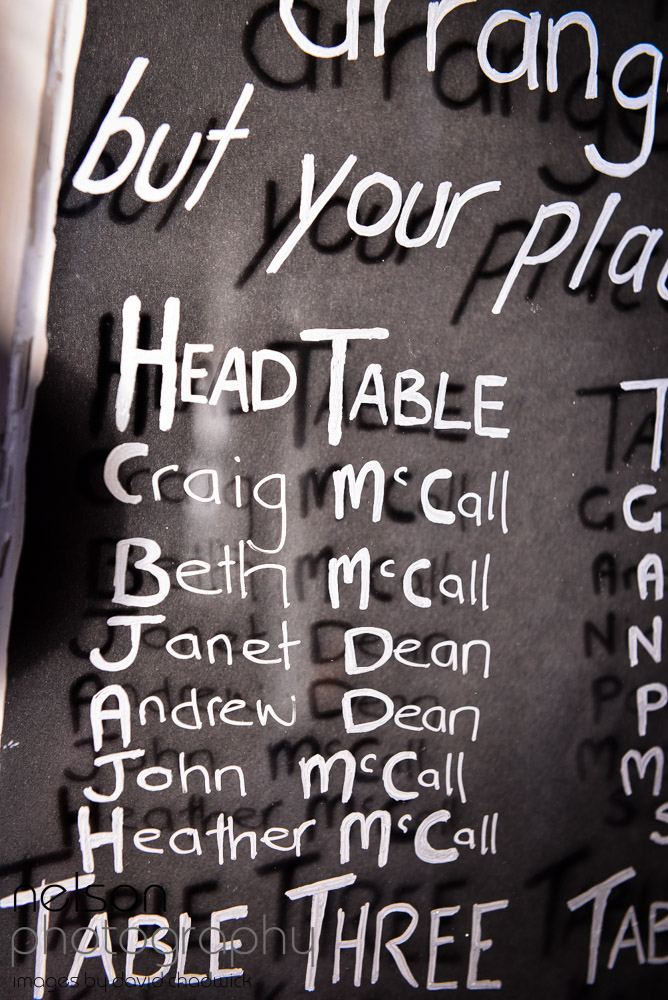 arrang
but your pla
HEAD TABLE
Craig McCall
Beth McCall
Janet Dean
Andrew Dean
John McCall
Heather McCall
TABLE THREE TAB
T
G
A
N
P
M
S
nelson
photography
images by david chadwick